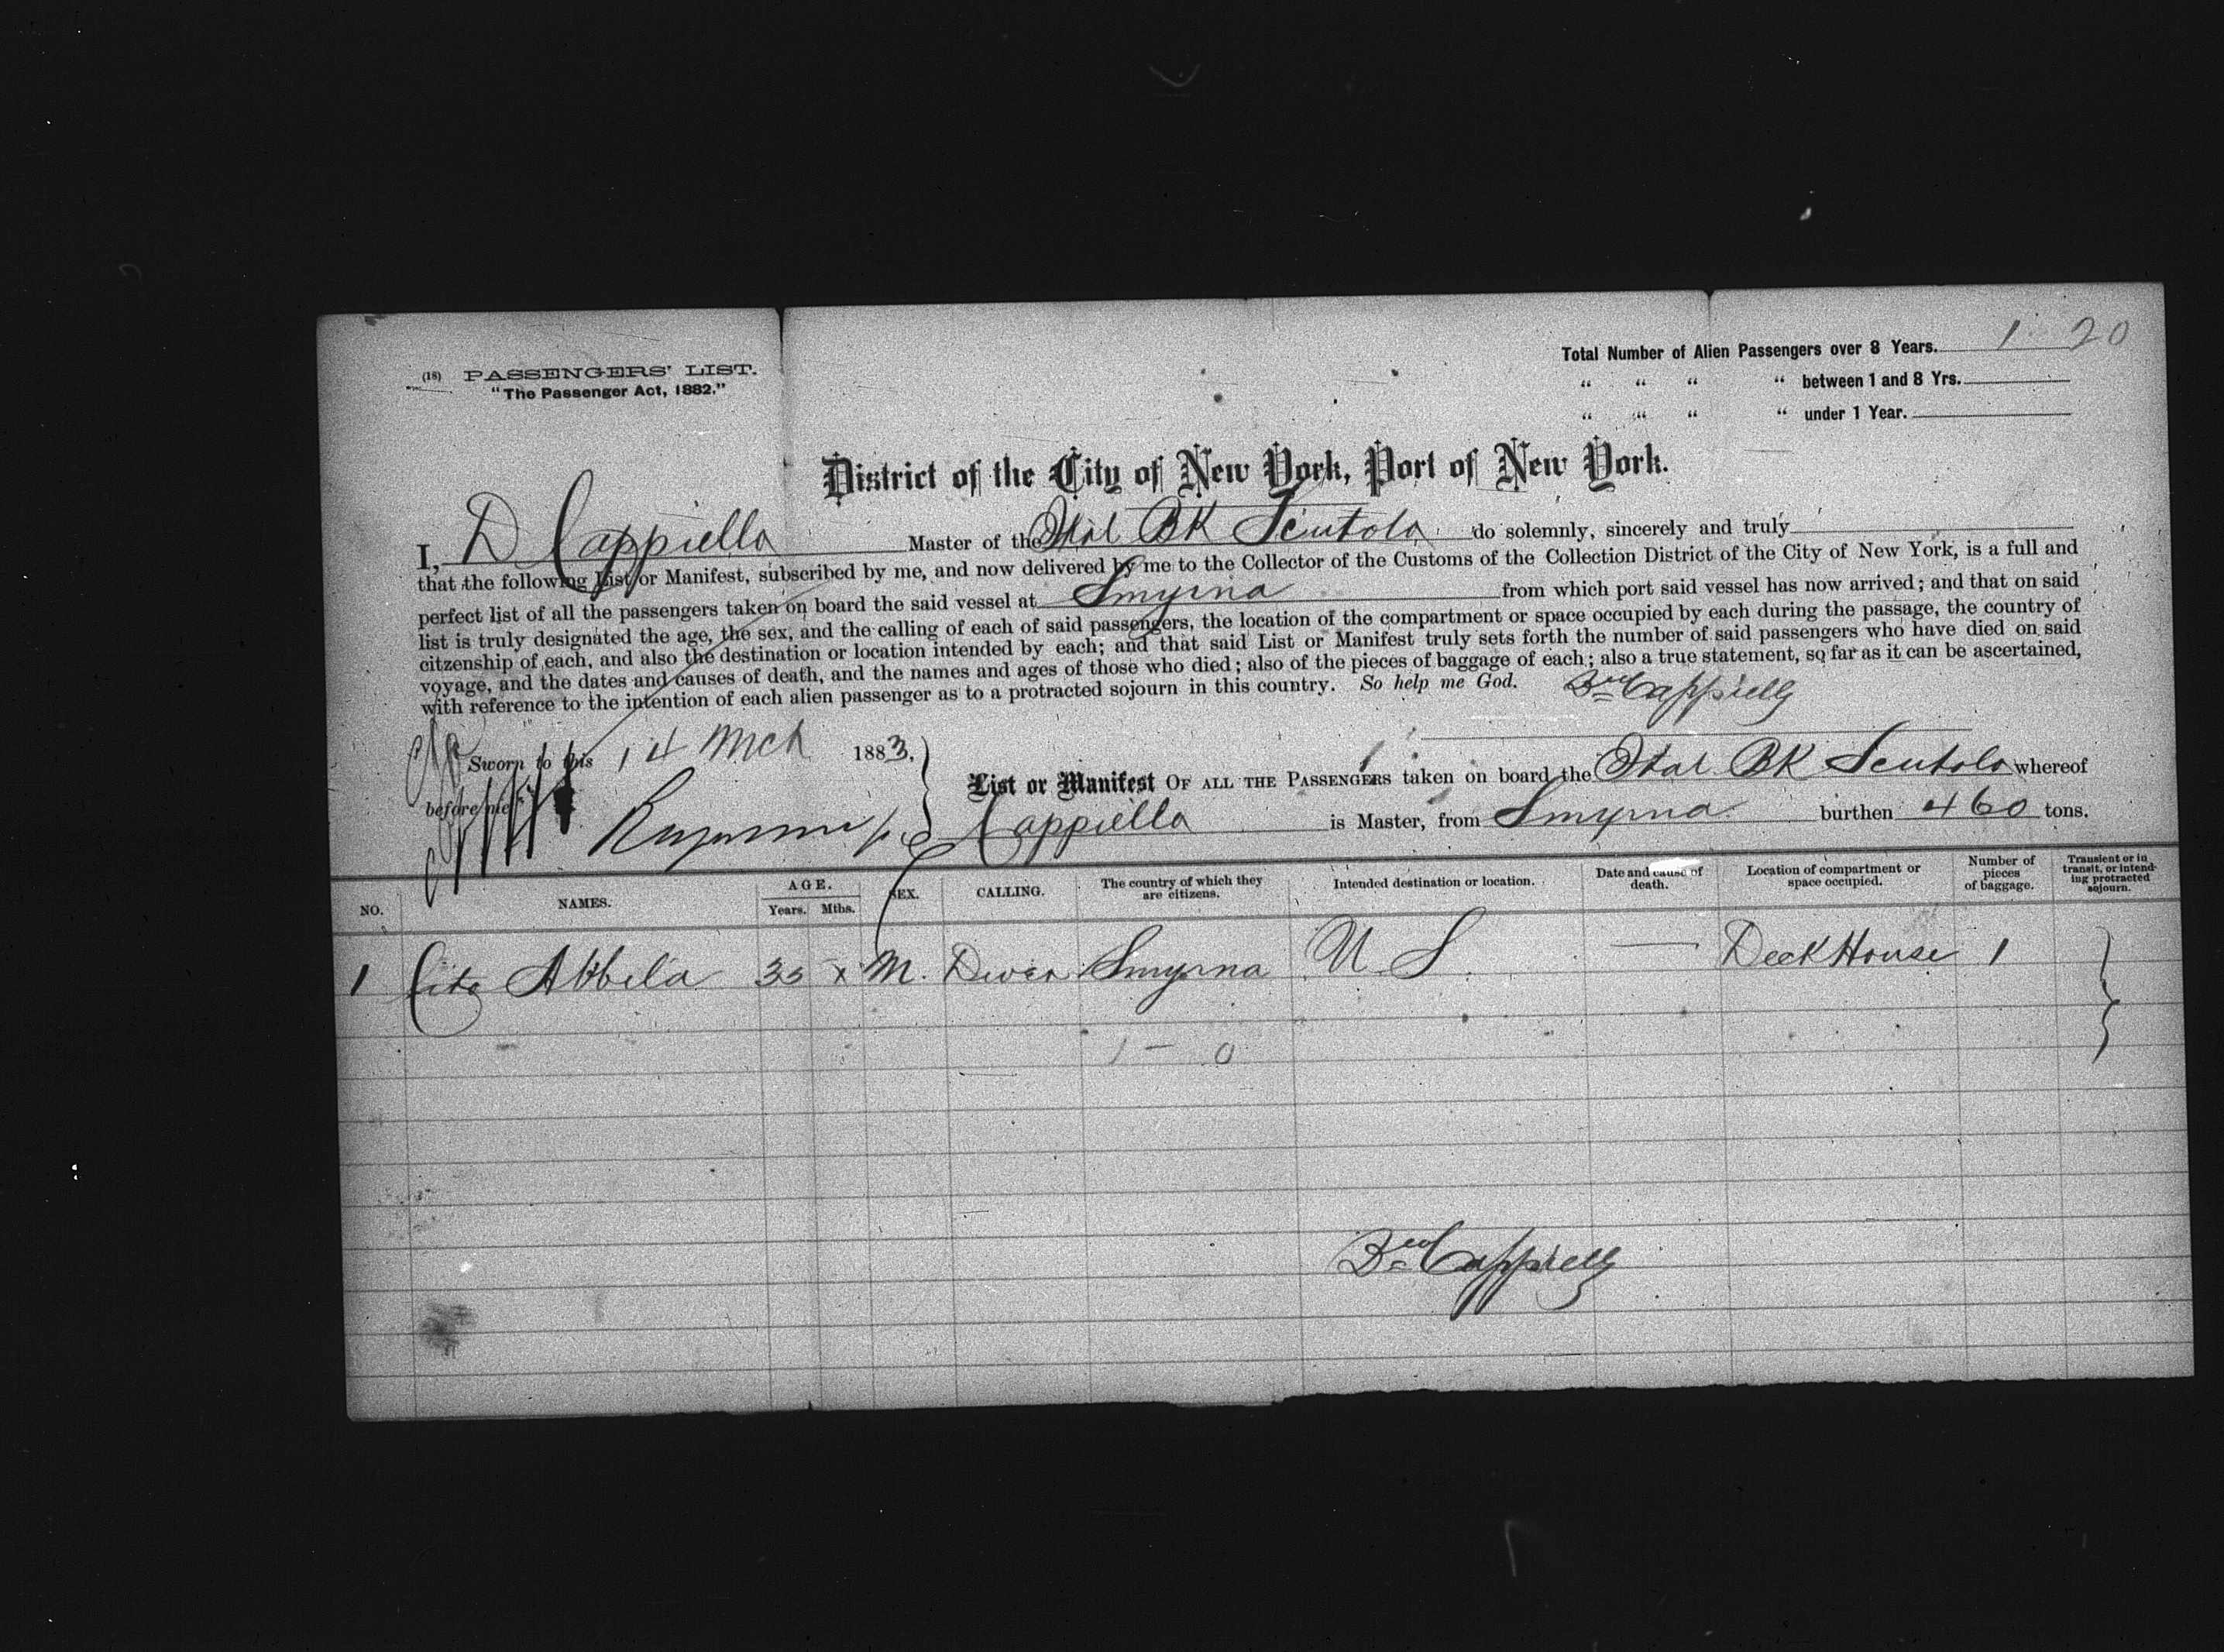 (18) PASSENGERS' LIST.
"The Passenger Act, 1882."
Total Number of Alien Passengers over 8 Years. 1 20
" " " " between 1 and 8 Yrs.
" " " " under 1 Year.
District of the City of New York, Port of New York.
I, D Cappiello Master of the Ital BK Scutolo do solemnly, sincerely and truly
that the following List or Manifest, subscribed by me, and now delivered by me to the Collector of the Customs of the Collection District of the City of New York, is a full and
perfect list of all the passengers taken on board the said vessel at Smyrna from which port said vessel has now arrived; and that on said
list is truly designated the age, the sex, and the calling of each of said passengers, the location of the compartment or space occupied by each during the passage, the country of
citzenship of each, and also the destination or location intended by each; and that said List or Manifest truly sets forth the number of said passengers who have died on said
voyage, and the dates and causes of death, and the names and ages of those who died; also of the pieces of baggage of each; also a true statement, so far as it can be ascertained,
with reference to the intention of each alien passenger as to a protracted sojourn in this country. So help me God. Cappiello
Sworn to this 14 Mch 1883,
before me
List or Manifest OF ALL THE PASSENGERS taken on board the Ital BK Scutolo whereof
Cappiello is Master, from Smyrna burthen 460 tons.
NO. NAMES. AGE. Years. Mths. SEX. CALLING. The country of which they are citizens. Intended destination or location. Date and cause of death. Location of compartment or space occupied. Number of pieces of baggage. Transient or in transit, or intending protracted sojourn.
1 Abbela 33 x M. Smyrna U S — Deck House 1
1 – 0
Cappiello